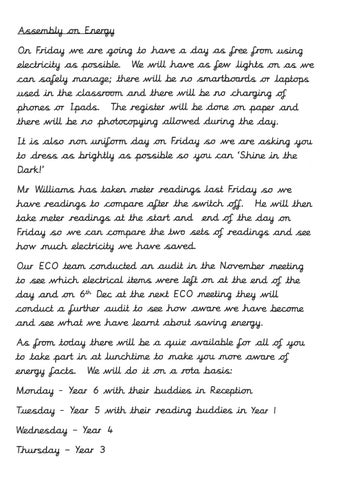 Assembly on Energy
On Friday we are going to have a day as free from using
electricity as possible. We will have as few lights on as we
can safely manage; there will be no smartboards or laptops
used in the classroom and there will be no charging of
phones or Ipads. The register will be done on paper and
there will be no photocopying allowed during the day.
It is also non uniform day on Friday so we are asking you
to dress as brightly as possible so you can 'Shine in the
Dark!'
Mr Williams has taken meter readings last Friday so we
have readings to compare after the switch off. He will then
take meter readings at the start and end of the day on
Friday so we can compare the two sets of readings and see
how much electricity we have saved.
Our ECO team conducted an audit in the November meeting
to see which electrical items were left on at the end of the
day and on 6th Dec at the next ECO meeting they will
conduct a further audit to see how aware we have become
and see what we have learnt about saving energy.
As from today there will be a quiz available for all of you
to take part in at lunchtime to make you more aware of
energy facts. We will do it on a rota basis:
Monday - Year 6 with their buddies in Reception
Tuesday - Year 5 with their reading buddies in Year 1
Wednesday - Year 4
Thursday - Year 3